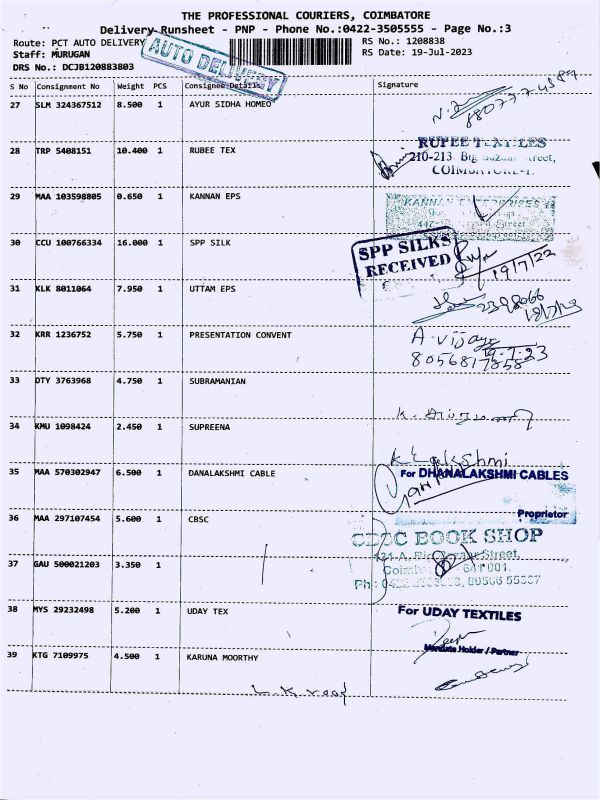 THE PROFESSIONAL COURIERS, COIMBATORE
Delivery Runsheet - PNP - Phone No.:0422-3505555 - Page No.:3
Route: PCT AUTO DELIVERY
RS No.: 1208838
Staff: MURUGAN
RS Date: 19-Jul-2023
DRS No.: DCJB120883803
AUTO DELIVERY
S No Consignment No Weight PCS Consignee Details Signature
27 SLM 324367512 8.500 1 AYUR SIDHA HOMEO
28 TRP 5408151 10.400 1 RUBEE TEX
RUPEE TEXTILES
210-213 Big Street,
29 MAA 103598805 0.650 1 KANNAN EPS
KANNAN ENTERPRISES
30 CCU 100766334 16.000 1 SPP SILK
SPP SILKS
RECEIVED
19/7/22
31 KLK 8011064 7.950 1 UTTAM EPS
32 KRR 1236752 5.750 1 PRESENTATION CONVENT
A. vijaya
33 DTY 3763968 4.750 1 SUBRAMANIAN
34 KMU 1098424 2.450 1 SUPREENA
K Lakshmi
35 MAA 570302947 6.500 1 DANALAKSHMI CABLE
For DHANALAKSHMI CABLES
Proprietor
36 MAA 297107454 5.600 1 CBSC
CBSC BOOK SHOP
37 GAU 500021203 3.350 1
641 001.
38 MYS 29232498 5.200 1 UDAY TEX
For UDAY TEXTILES
Mandate Holder / Partner
39 KTG 7109975 4.500 1 KARUNA MOORTHY